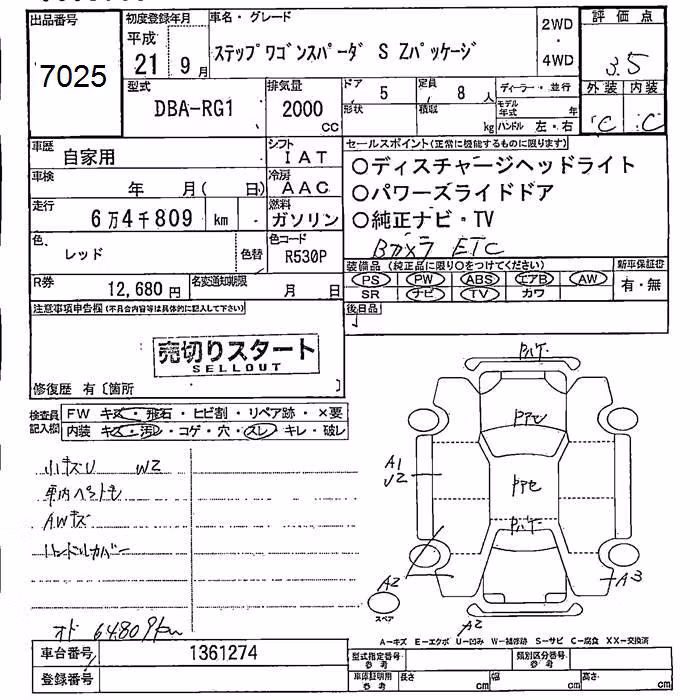 出品番号
7025
初度登録年月
平成
21 9月
車名・グレード
ステップワゴンスパーダ S Zパッケージ
2WD
・
4WD
評価点
3.5
型式
DBA-RG1
排気量
2000
cc
ドア 5
定員 8 人
形状
積載
kg
ディーラー・並行
モデル年式 年
ハンドル 左・右
外装 内装
C C
車歴
自家用
シフト
IAT
車検
年 月( 日)
冷房
AAC
走行
6万4千809 km
燃料
ガソリン
色.
レッド
色替
色コード
R530P
R券
12,680円
名変通知期限
月 日
セールスポイント(正常に機能するものに限ります)
○ディスチャージヘッドライト
○パワースライドドア
○純正ナビ・TV
Bカメラ ETC
装備品(純正品に限り○をつけてください)
新車保証書
PS PW ABS エアB AW
有・無
SR ナビ TV カワ
後日品
注意事項申告欄(不具合内容等は具体的に記入して下さい)
売切りスタート
SELLOUT
修復歴 有〔箇所 〕
検査員記入欄
FW キズ・飛石・ヒビ割・リペア跡・×要
内装 キズ・汚れ・コゲ・穴・スレ・キレ・破レ
小キズU W2
AWキズ
ハンドルカバー
オド 64809km
A1
U2
A2
A3
A2
スペア
A-キズ E-エクボ U-凹み W-補修跡 S-サビ C-腐食 XX-交換済
車台番号
1361274
登録番号
型式指定番号
参考
類別区分番号
参考
車庫証明用
参考
長さ cm
幅 cm
高さ cm